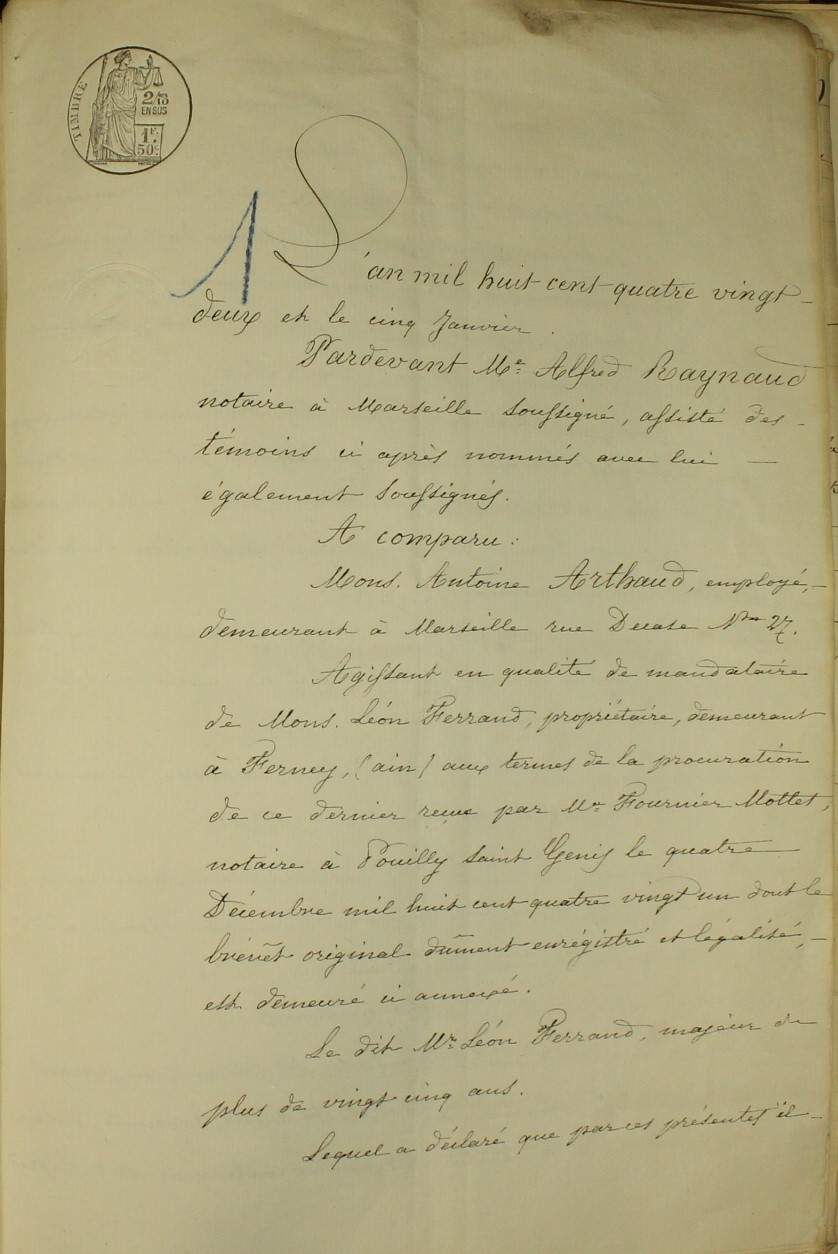 TIMBRE
2/10
EN SUS
1F.
50c.
1
L'an mil huit cent quatre vingt
deux et le cinq Janvier.
Pardevant Me Alfred Raynaud
notaire à Marseille soussigné, assisté des
témoins ci après nommés avec lui
également soussignés.
A comparu :
Mons. Antoine Arthaud, employé,
demeurant à Marseille rue Decase No 27.
Agissant en qualité de mandataire
de Mons. Léon Ferrand, propriétaire, demeurant
à Ferney, (ain) aux termes de la procuration
de ce dernier reçue par Me Fournier Mottet,
notaire à Pouilly Saint Genis le quatre
Décembre mil huit cent quatre vingt un dont le
brévêt original dûment enrégistré et légalisé,
est demeuré ci annexé.
Le dit Mr Léon Ferrand, majeur de
plus de vingt cinq ans.
Lequel a déclaré que par ces présentes il